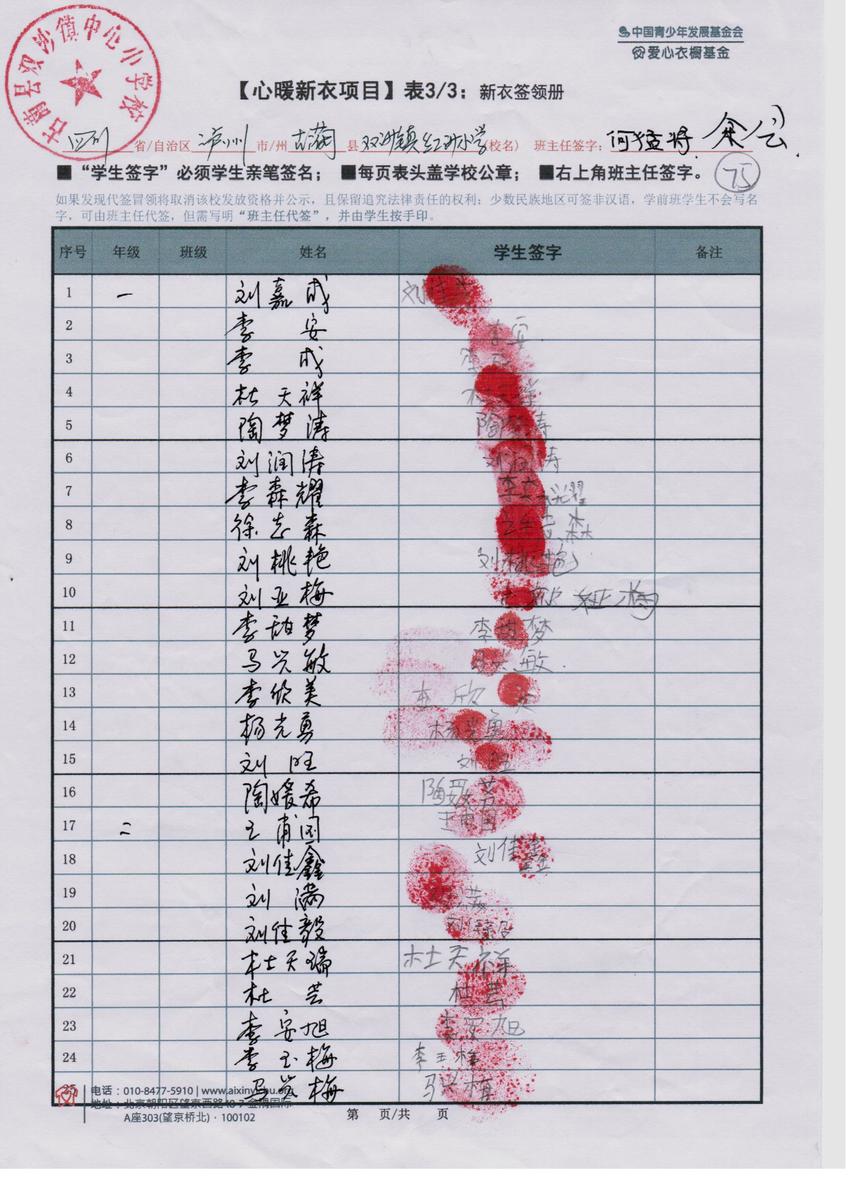 古蔺县双沙镇中心小学校
中国青少年发展基金会
爱心衣橱基金
【心暖新衣项目】表3/3：新衣签领册
四川 省/自治区 泸州 市/州 古蔺 县 双沙镇红 小学(校名) 班主任签字：何猛将 余
■“学生签字”必须学生亲笔签名；■每页表头盖学校公章；■右上角班主任签字。 75
如果发现代签冒领将取消该校发放资格并公示，且保留追究法律责任的权利；少数民族地区可签非汉语，学前班学生不会写名
字，可由班主任代签，但需写明“班主任代签”，并由学生按手印。
序号 年级 班级 姓名 学生签字 备注
1 一 刘嘉成 刘
2 李安 李安
3 李成 李
4 杜天祥
5 陶梦涛 陶 涛
6 刘润涛 刘 涛
7 李森耀 李 耀
8 徐志森 森
9 刘桃艳 刘桃艳
10 刘亚梅 亚梅
11 李甜梦 李 梦
12 马兴敏 敏
13 李欣美 李欣美
14 杨光勇 杨光勇
15 刘旺 刘旺
16 陶媛希 陶媛希
17 二 王甫国 王甫国
18 刘佳鑫 刘佳鑫
19 刘满 满
20 刘佳毅 刘
21 杜天瑞 杜天
22 杜芸 杜芸
23 李安旭 李安旭
24 李玉梅 李玉梅
25 马兴梅 马兴梅
电话：010-8477-5910 | www.aixinyichu.org
地址：北京朝阳区望京西路48-7 金隅国际
A座303(望京桥北)·100102
第 页/共 页